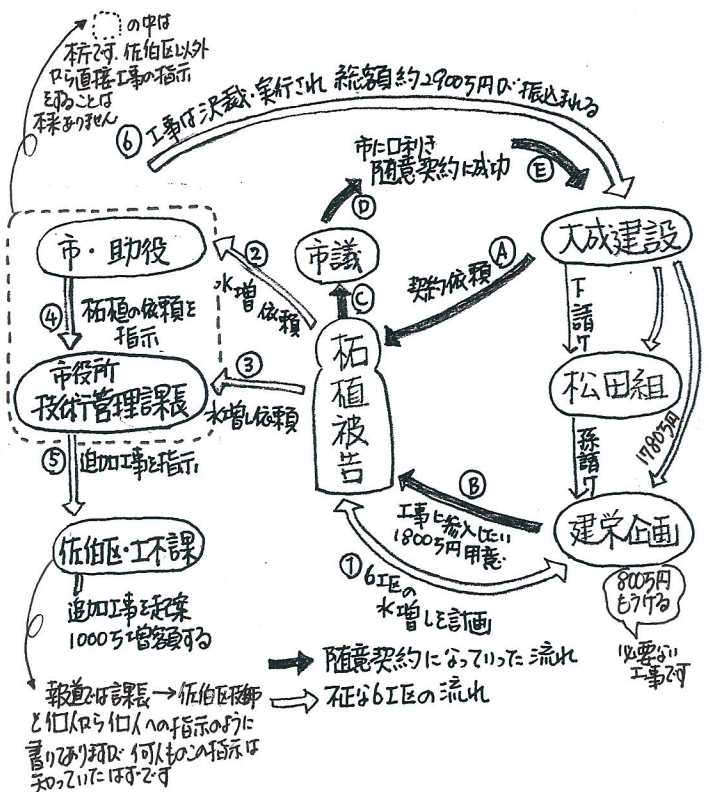 の中は
本庁です。佐伯区以外
から直接工事の指示
をすることは
本来ありません
⑥ 工事は決裁・実行され 総額約2900万円が振込まれる
市に口利き
随意契約に成功
Ⓔ
Ⓓ
市・助役
② 水増依頼
市議
契約依頼
Ⓐ
大成建設
④ 柘植の依頼を
指示
Ⓒ
下請け
市役所
技術管理課長
③
水増し依頼
柘植被告
松田組
1780万円
⑤ 追加工事を指示
孫請け
Ⓑ
工事に参入したい
1800万円用意
建栄企画
佐伯区・土木課
① 6工区の
水増しを計画
800万円
もうける
追加工事を起案
1000万増額する
必要ない
工事です
随意契約になっていった流れ
不正な6工区の流れ
報道では課長→佐伯区技師
と個人から個人への指示のように
書いてありますが 何人もこの指示は
知っていたはずです